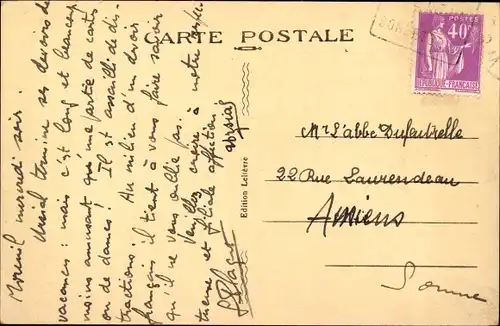 CARTE POSTALE
POSTES
40c
RÉPUBLIQUE FRANÇAISE
Moreuil mercredi soir.
Urcial termine ses devoirs de
vacances : mais c'est long et beaucoup
moins amusant qu'une partie de cartes
ou de dames ! Il est assailli de di-
tractions ! Au milieu d'un devoir
français il tient à vous faire savoir
qu'il ne vous oublie pas.
Veuillez croire à notre
et filiale affection
Urcial
Edition Lelièvre
Mr L'abbé Dufautrelle
22 Rue Laurendeau
Amiens
Somme